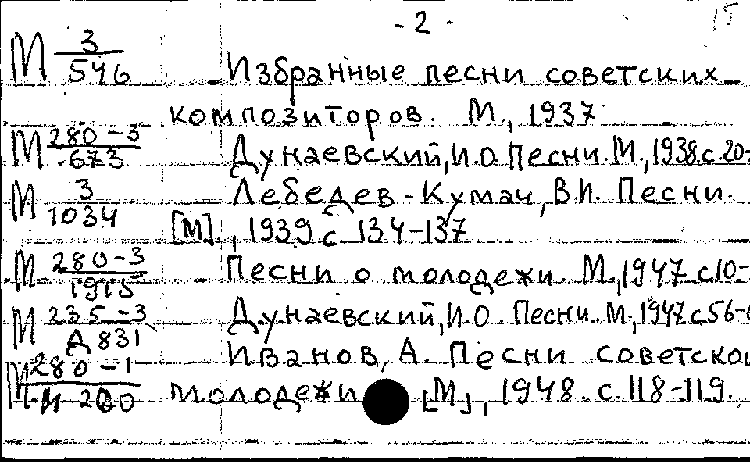 - 2 -
15
М 3/546 Избранные песни советских
композиторов. М., 1937
М 280-3/673 Дунаевский, И.О. Песни. М., 1938 с. 20-
М 3/1034 Лебедев-Кумач, В.И. Песни.
[М], 1939 с 134-137
М 280-3/1915 Песни о молодежи. М., 1947 с 10-
М 235-3/Д 831 Дунаевский, И.О. Песни. М., 1947 с 56-
М 280-1/И 200 Иванов, А. Песни советской
молодежи [М], 1948. с. 118-119.